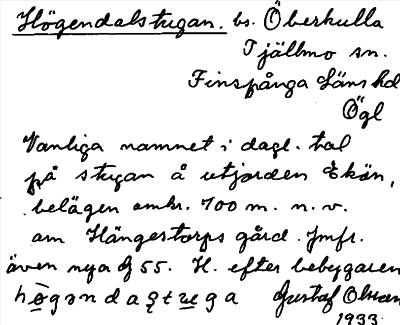 Högendalstugan. bs. Överkulla
Tjällmo sn.
Finspånga Läns hd
Ögl
Vanliga namnet i dagl. tal
på stugan å utjorden Ekön,
belägen omkr. 700 m. n. v.
om Hängestorps gård. Jmfr.
även nya G 55. H. efter bebyggaren
Gustaf Olsson
1933